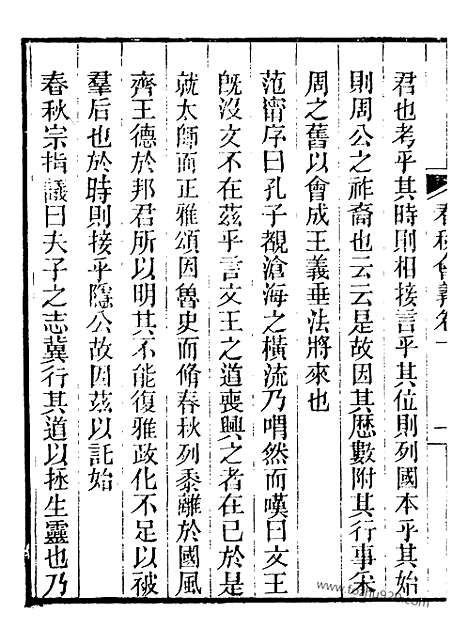 春秋會義卷一
一
君也考乎其時則相接言乎其位則列國本乎其始
則周公之祚裔也云云是故因其歷數附其行事采
周之舊以會成王義垂法將來也
范甯序曰孔子覩滄海之橫流乃喟然而嘆曰文王
旣沒文不在茲乎言文王之道喪興之者在已於是
就太師而正雅頌因魯史而脩春秋列黍離於國風
齊王德於邦君所以明其不能復雅政化不足以被
羣后也於時則接乎隱公故因茲以託始
春秋宗指議曰夫子之志冀行其道以拯生靈也乃